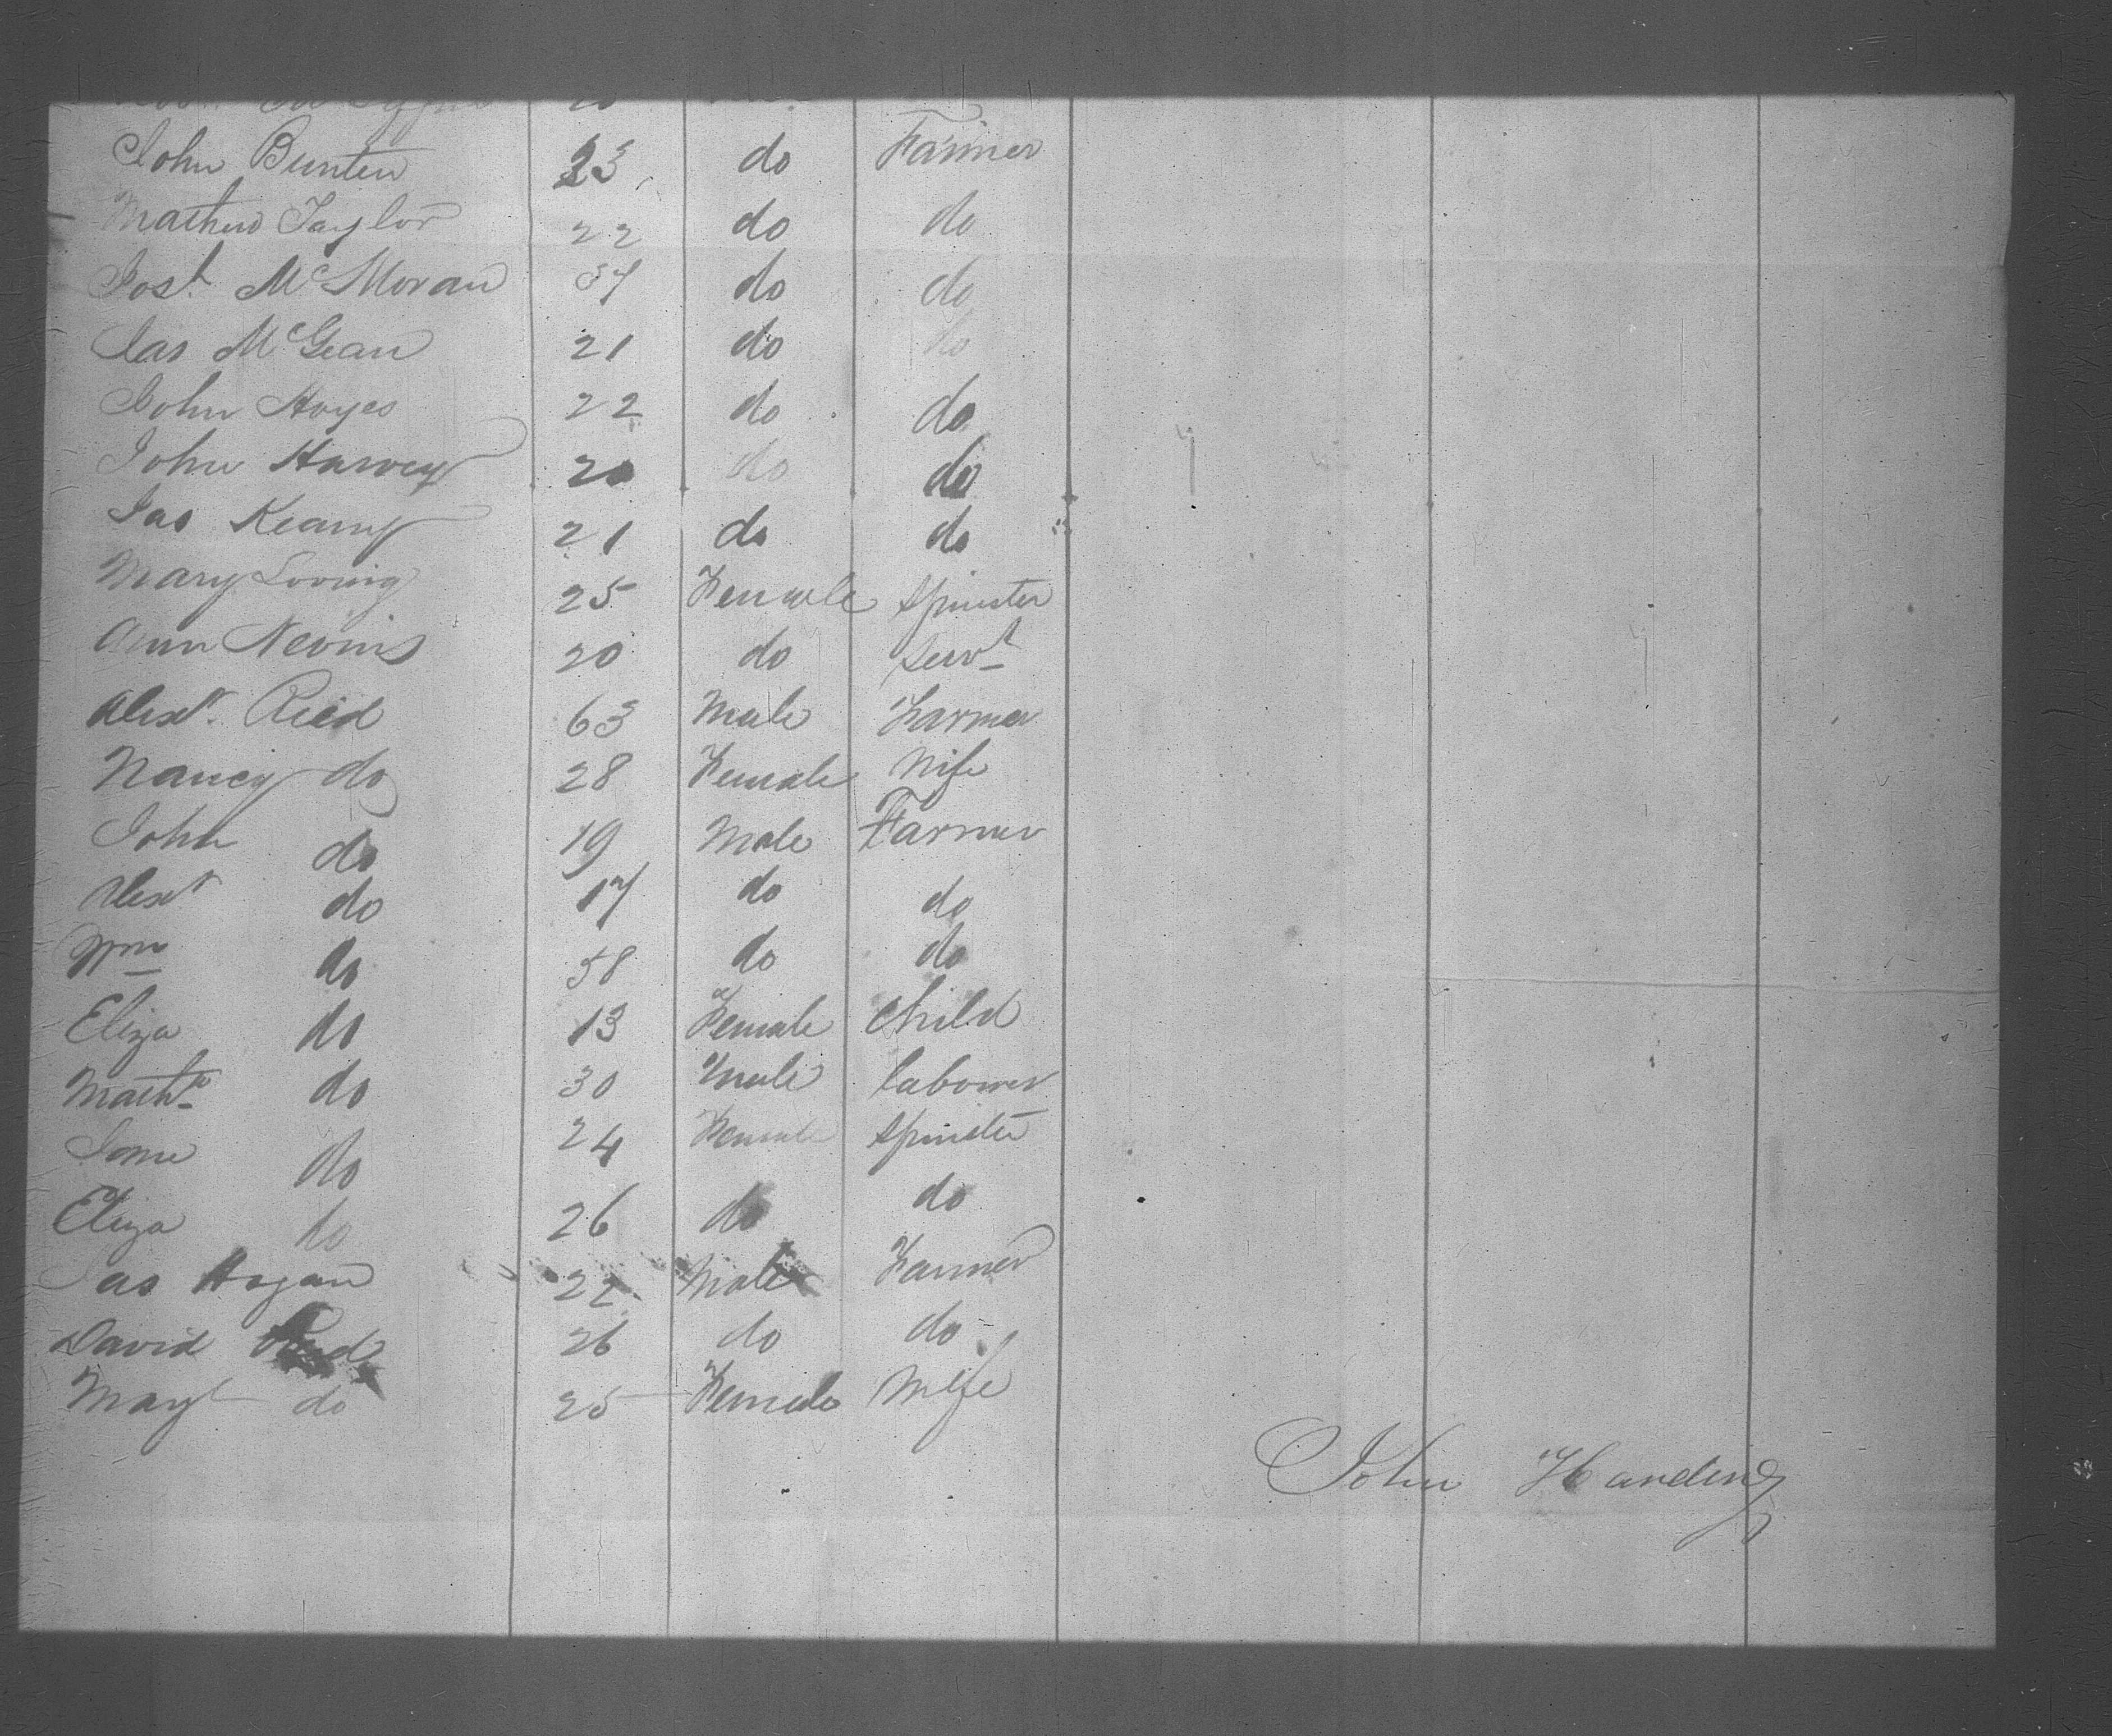 John Bunten 23 do Farmer
Mathew Taylor 22 do do
Josh McMoran 37 do do
Jas McGean 21 do do
John Hayes 22 do do
John Harvey 20 do do
Jas Kearny 21 do do
Mary Loving 25 Female Spinster
Ann Nevins 20 do Servt
Alexr. Reed 63 Male Farmer
Nancy do 28 Female Wife
John do 19 Male Farmer
Alexr do 17 do do
Wm do 58 do do
Eliza do 13 Female Child
Mathw do 30 Male labourer
Jane do 24 Female Spinster
Eliza do 26 do do
Jas Hogan 22 Male Farmer
David Reed 26 do do
Margt do 25 Female Wife
John Harding